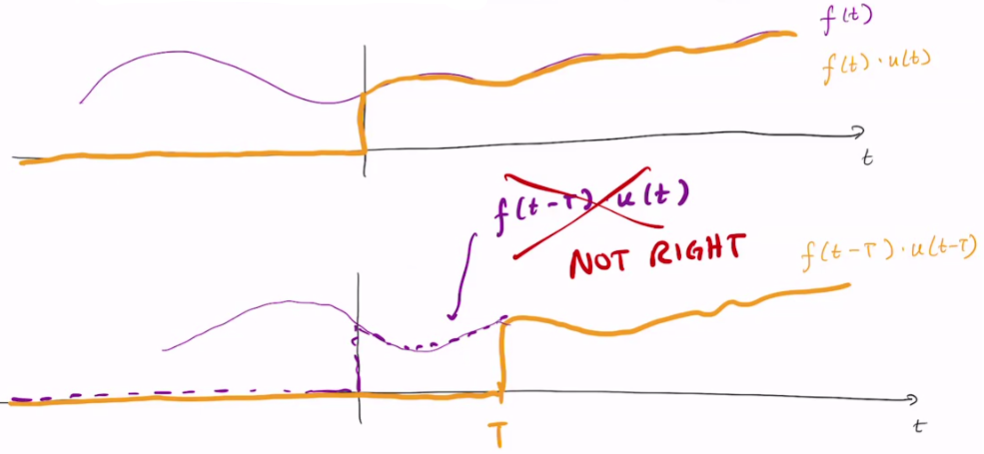 f(t)
f(t)·u(t)
t
f(t-T)·u(t)
NOT RIGHT
f(t-T)·u(t-T)
T
t